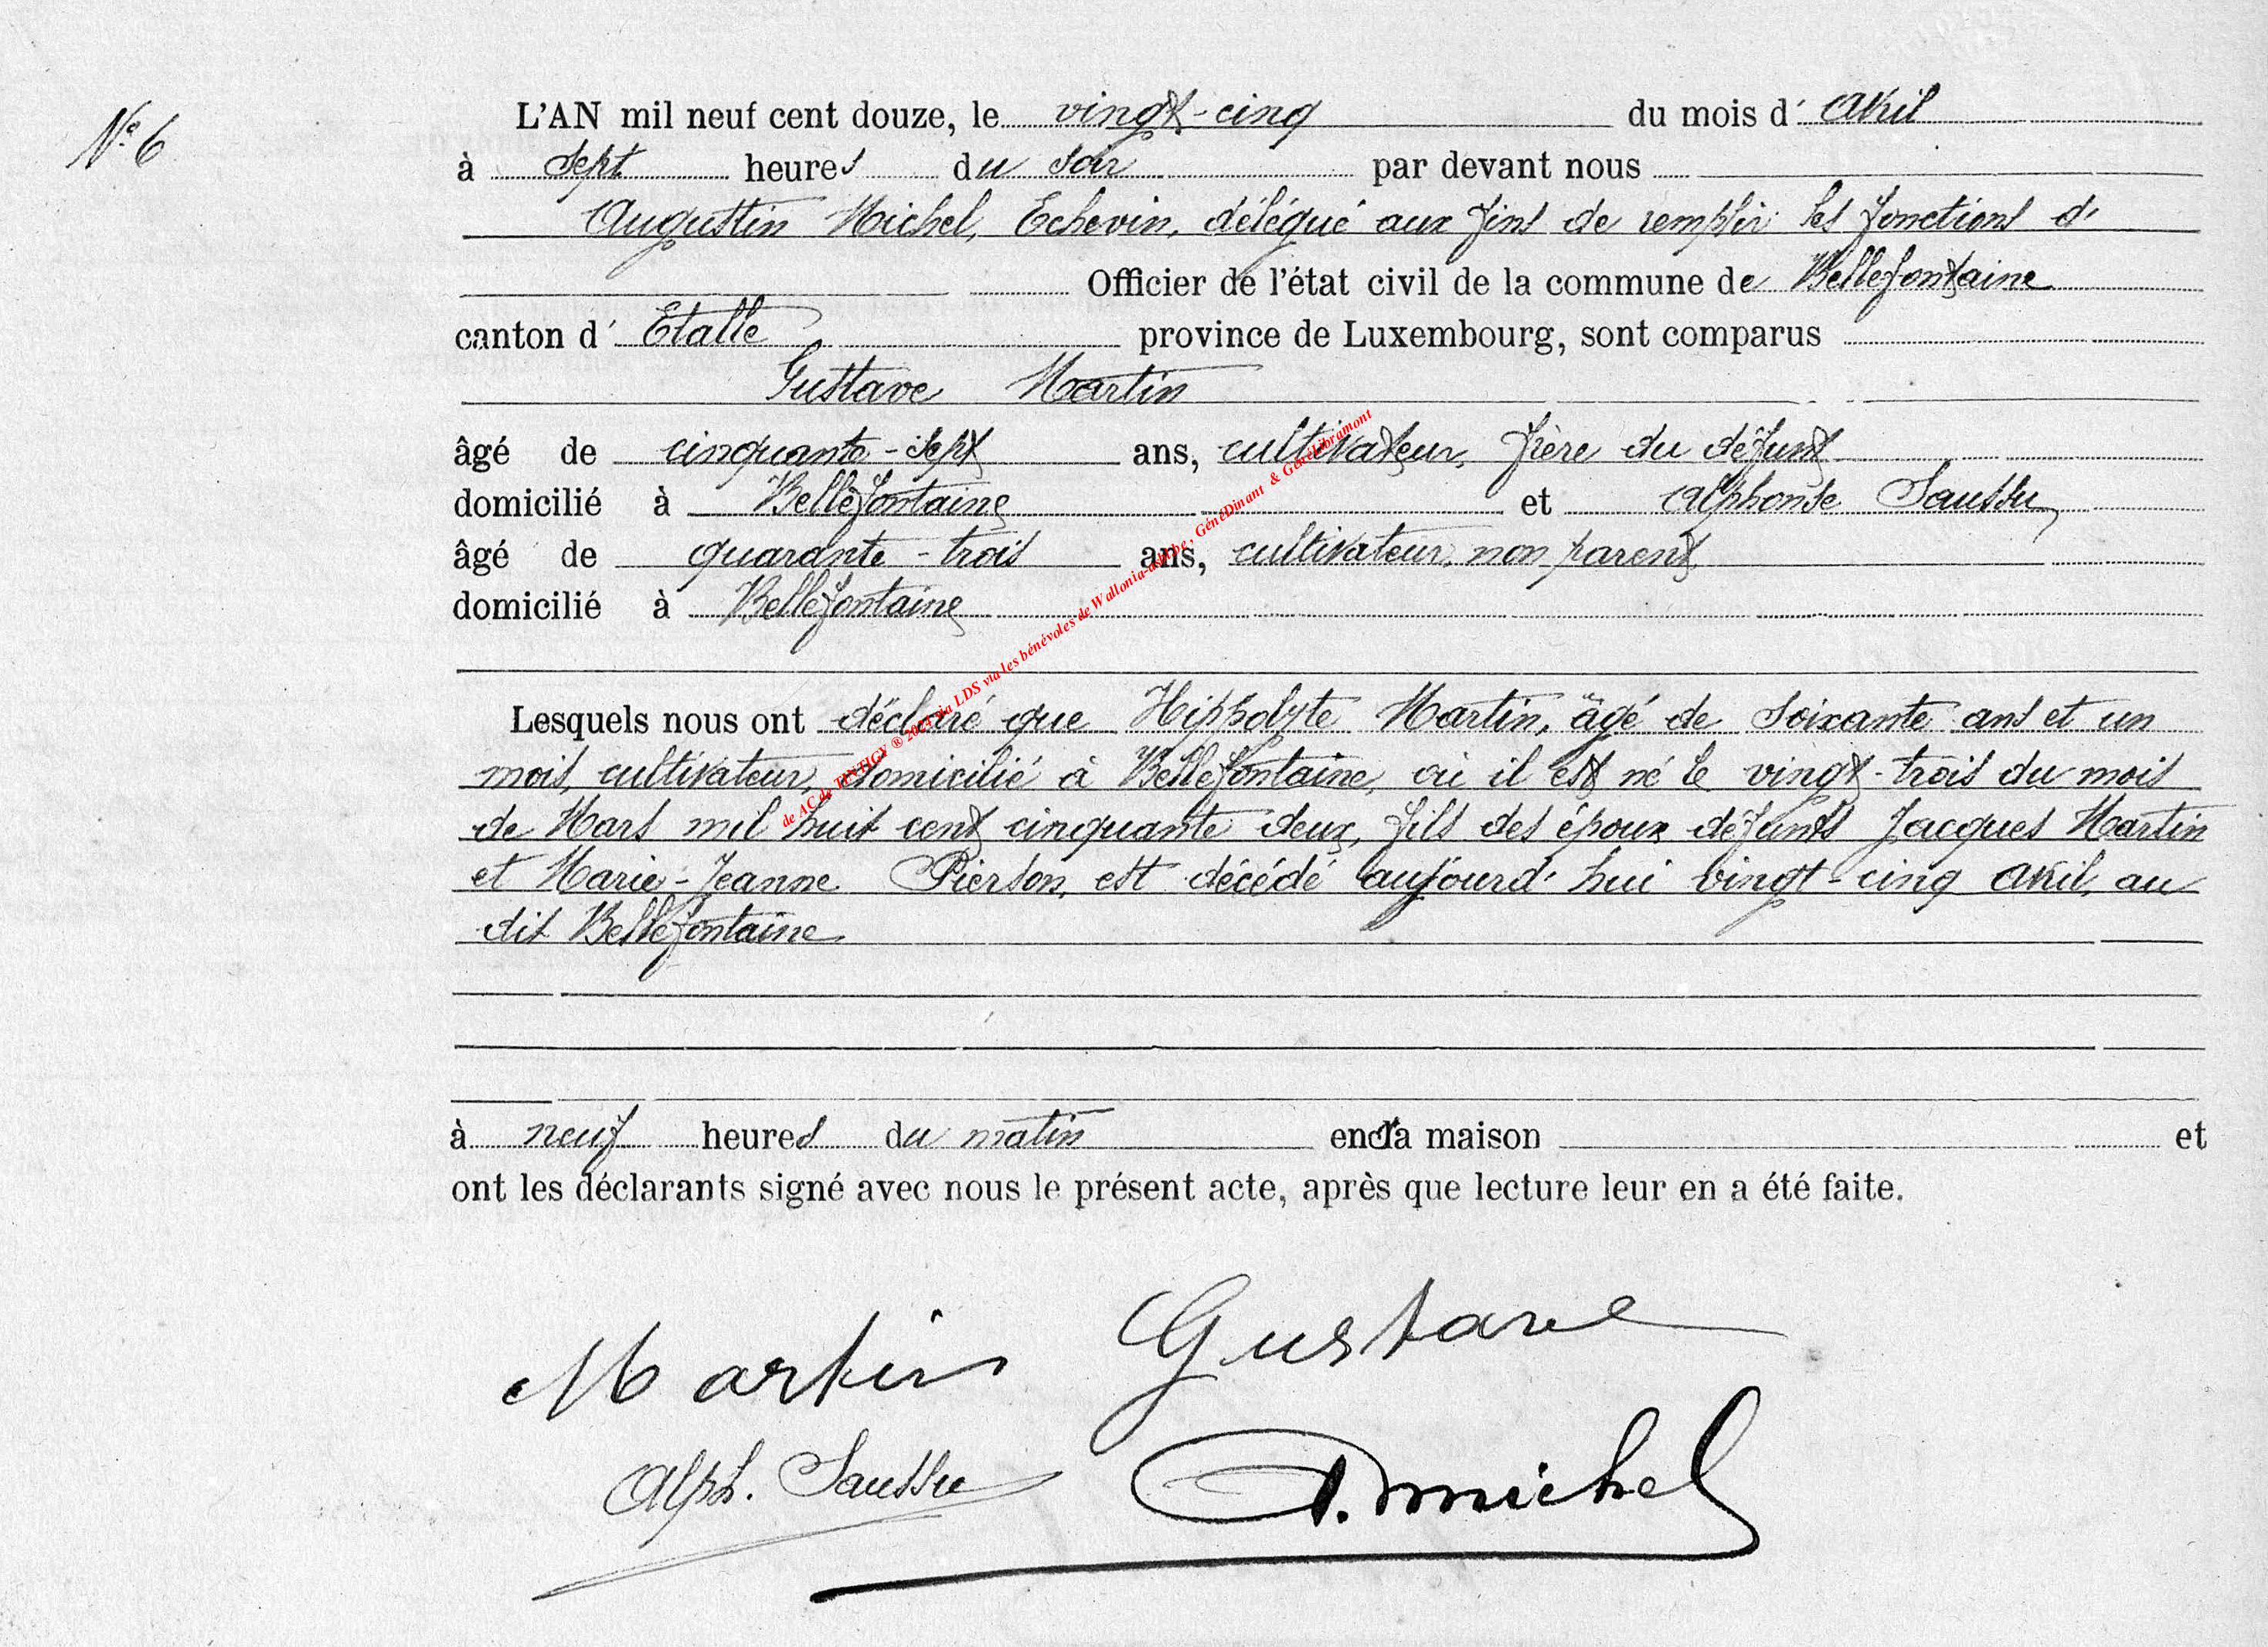 N° 6
L'AN mil neuf cent douze, le vingt-cinq du mois d' Avril
à Sept heures du soir par devant nous
Augustin Michel, Echevin, délégué aux fins de remplir les fonctions d'
Officier de l'état civil de la commune de Bellefontaine
canton d' Etalle province de Luxembourg, sont comparus
Gustave Martin
âgé de cinquante-sept ans, cultivateur, frère du défunt
domicilié à Bellefontaine et Alphonse Saussu,
âgé de quarante-trois ans, cultivateur, non parent
domicilié à Bellefontaine
Lesquels nous ont déclaré que Hippolyte Martin, âgé de soixante ans et un
mois, cultivateur, domicilié à Bellefontaine, où il est né le vingt-trois du mois
de Mars mil huit cent cinquante deux, fils des époux défunts Jacques Martin
et Marie-Jeanne Pierson, est décédé aujourd'hui vingt-cinq Avril, au
dit Bellefontaine
à neuf heures du matin en sa maison et
ont les déclarants signé avec nous le présent acte, après que lecture leur en a été faite.
Martin Gustave
Alph. Saussu A. Michel
de AC de TINTIGY ® 2024 via LDS via les bénévoles de Wallonia-asbl.be, GénéDinant & Génélibramont